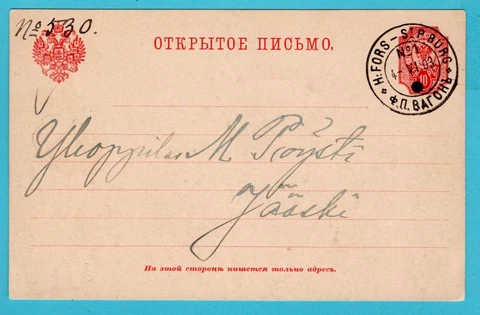 № 530.
ОТКРЫТОЕ ПИСЬМО.
H:FORS – S:P:BURG
№ 1
Ф.П. ВАГОНЪ
10
Ylioppilas M Pöysti
Jääski
На этой сторонѣ пишется только адресъ.